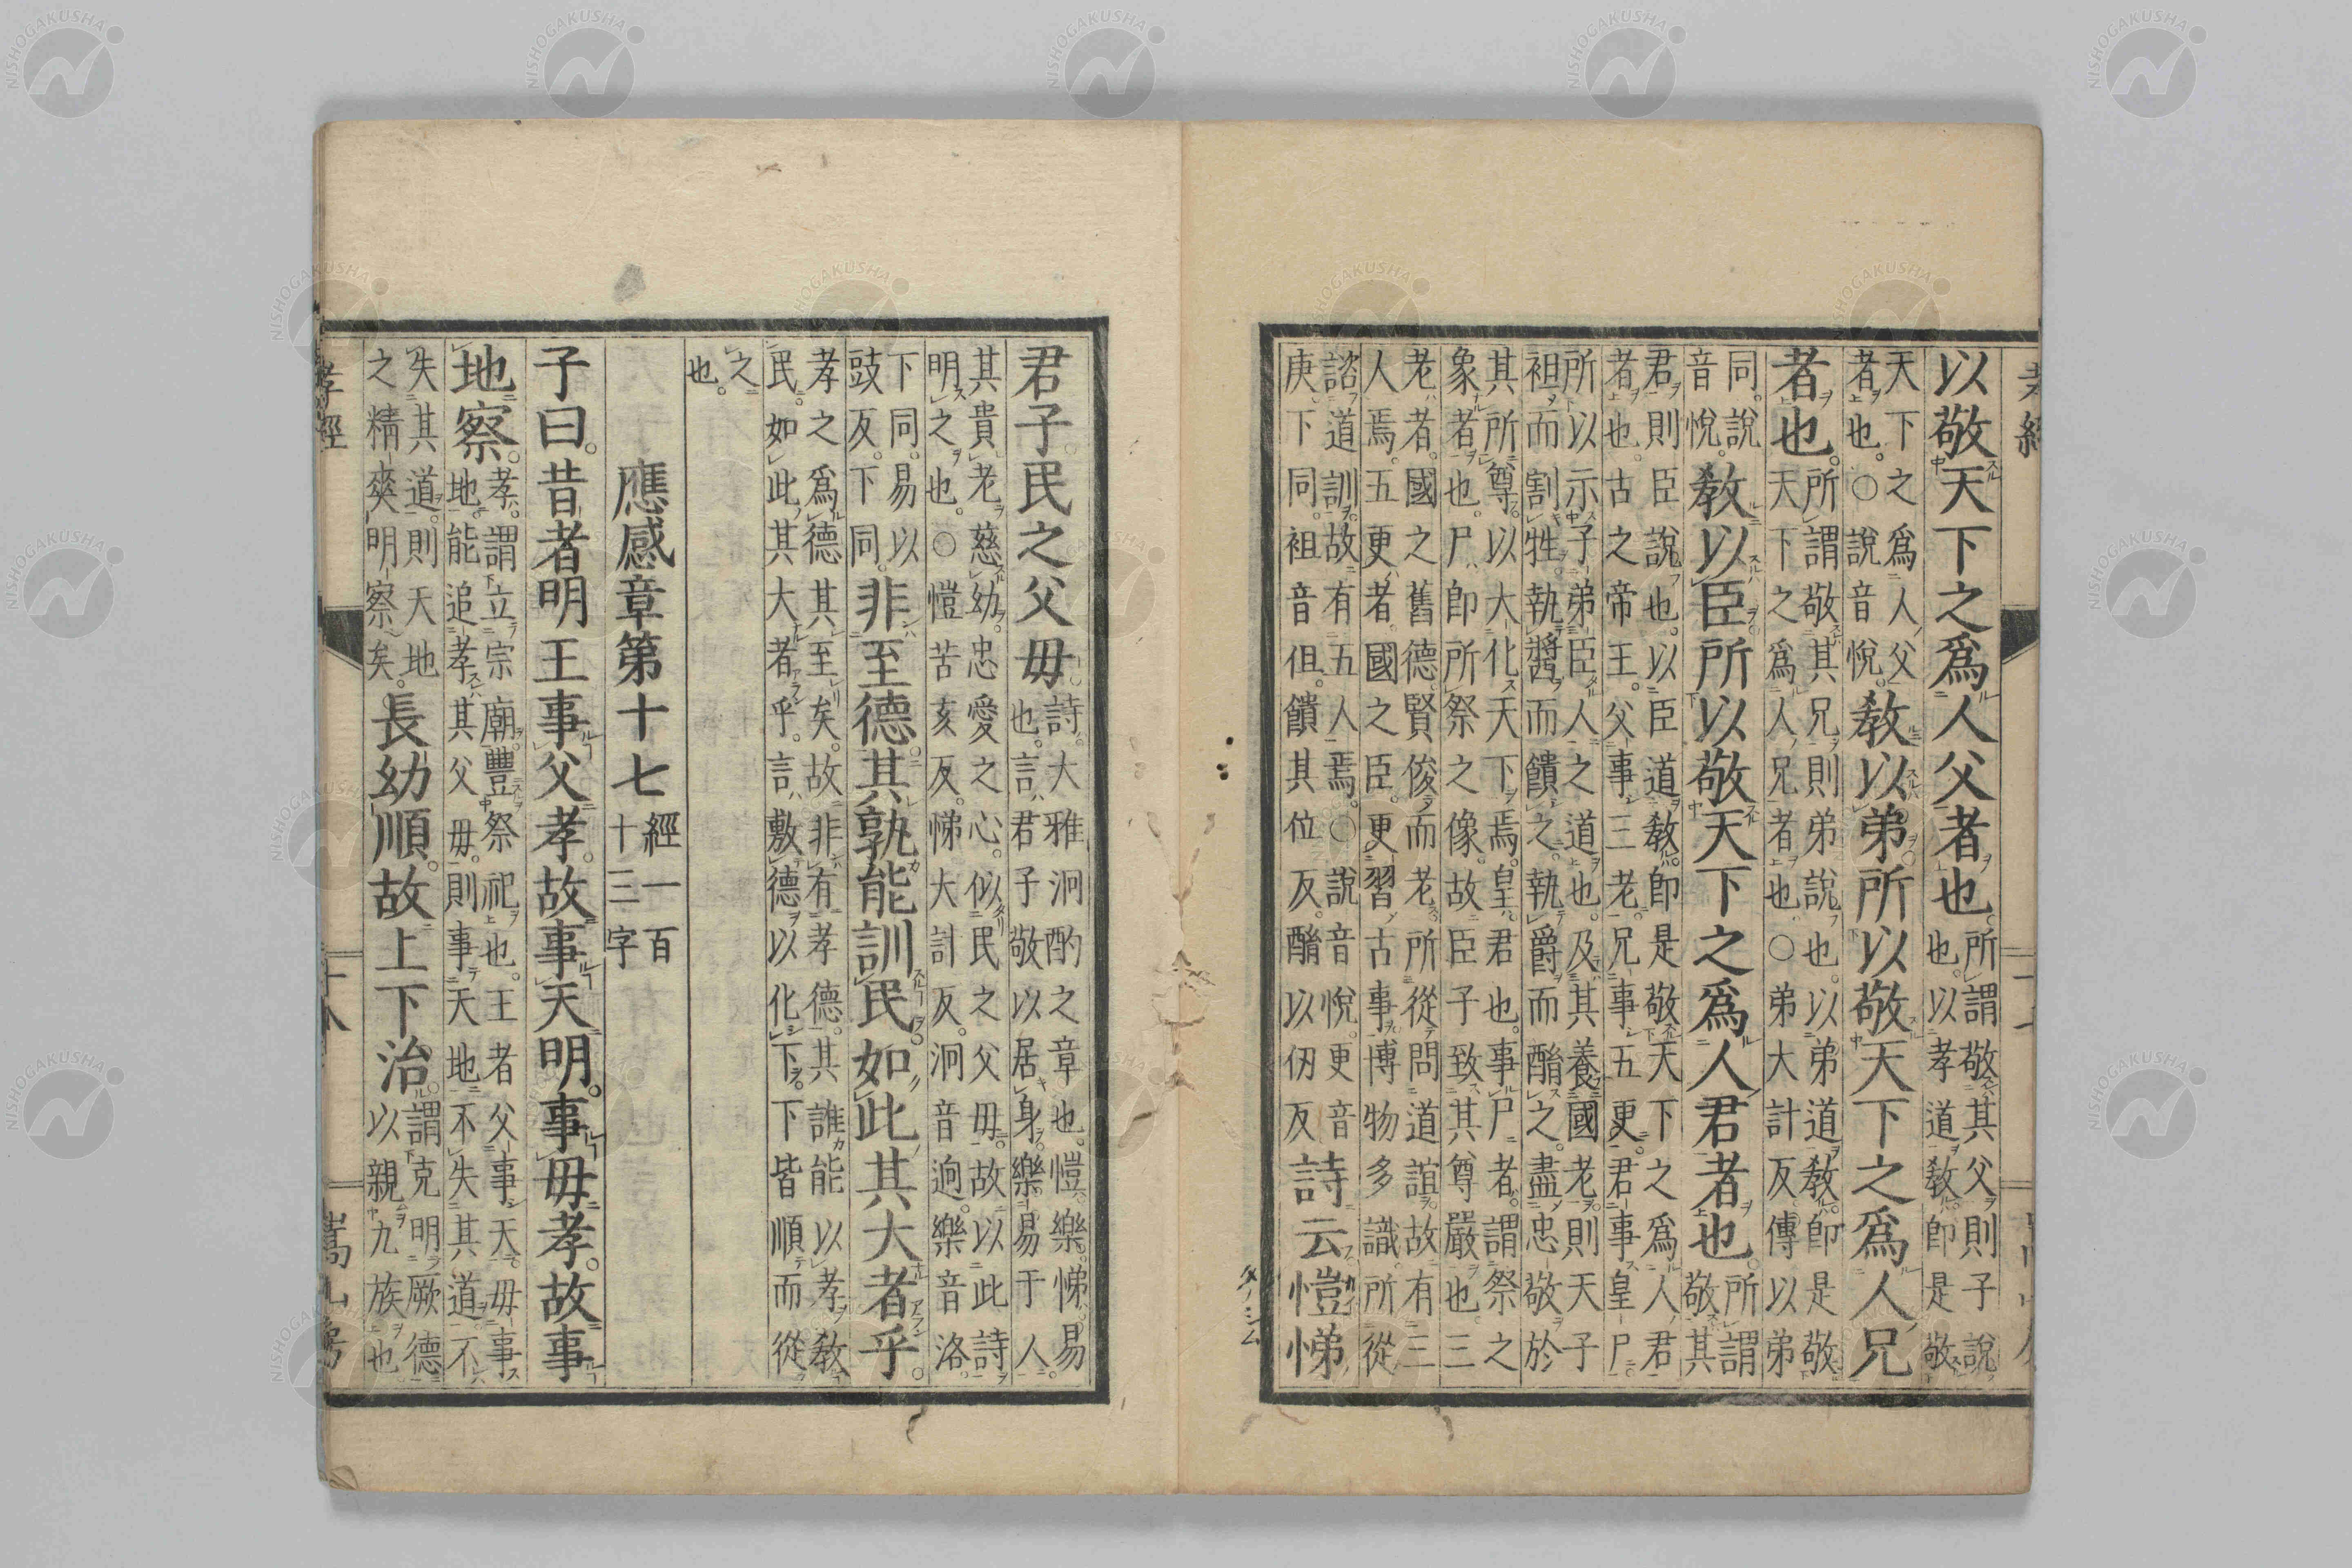 以敬天下之爲人父者也。所謂敬其父則子說
也。以孝道教即是敬
天下之爲人父
者也。○說音悅。教以弟所以敬天下之爲人兄
者也。所謂敬其兄則弟說也。以弟道教即是敬
天下之爲人兄者也。○弟大計反傳以弟
同。說
音悅。教以臣所以敬天下之爲人君者也。所謂
敬其
君則臣說也。以臣道教即是敬天下之爲人君
者也。古之帝王。父事三老。兄事五更。君事皇尸。
所以示子弟臣人之道也。及其養國老則天子
袒而割牲。執醬而饋之。執爵而酳之。盡忠敬於
其所尊。以大化天下焉。皇君也。事尸者。謂祭之
象者也。尸即所祭之像。故臣子致其尊嚴也。三
老者。國之舊德賢俊而老。所從問道誼。故有三
人焉。五更者。國之臣更習古事博物多識。所從
諮道訓。故有五人焉。○說音悅。更音
庚。下同。袒音但。饋其位反。酳以仞反。詩云愷悌
君子民之父母。詩大雅泂酌之章也。愷樂。悌易
也。言君子敬以居身。樂易于人。
其貴老慈幼。忠愛之心。似民之父母。故以此詩
明之也。○愷苦亥反。悌大計反。泂音迥。樂音洛。
下同。易以
豉反。下同。非至德其孰能訓民如此其大者乎。
孝之爲德其至矣。故非有孝德。其誰能以孝教
民。如此其大者乎。言敷德以化下。下皆順而從
之
也。
應感章第十七 經一百
十三字
子曰。昔者明王事父孝。故事天明。事母孝。故事
地察。孝謂立宗廟豐祭祀也。王者父事天。母事
地。能追孝其父母。則事天地不失其道。不
失其道。則天地
之精爽明察矣。長幼順。故上下治。謂克明厥德
以親九族也。
孝經
十八
嵩山房